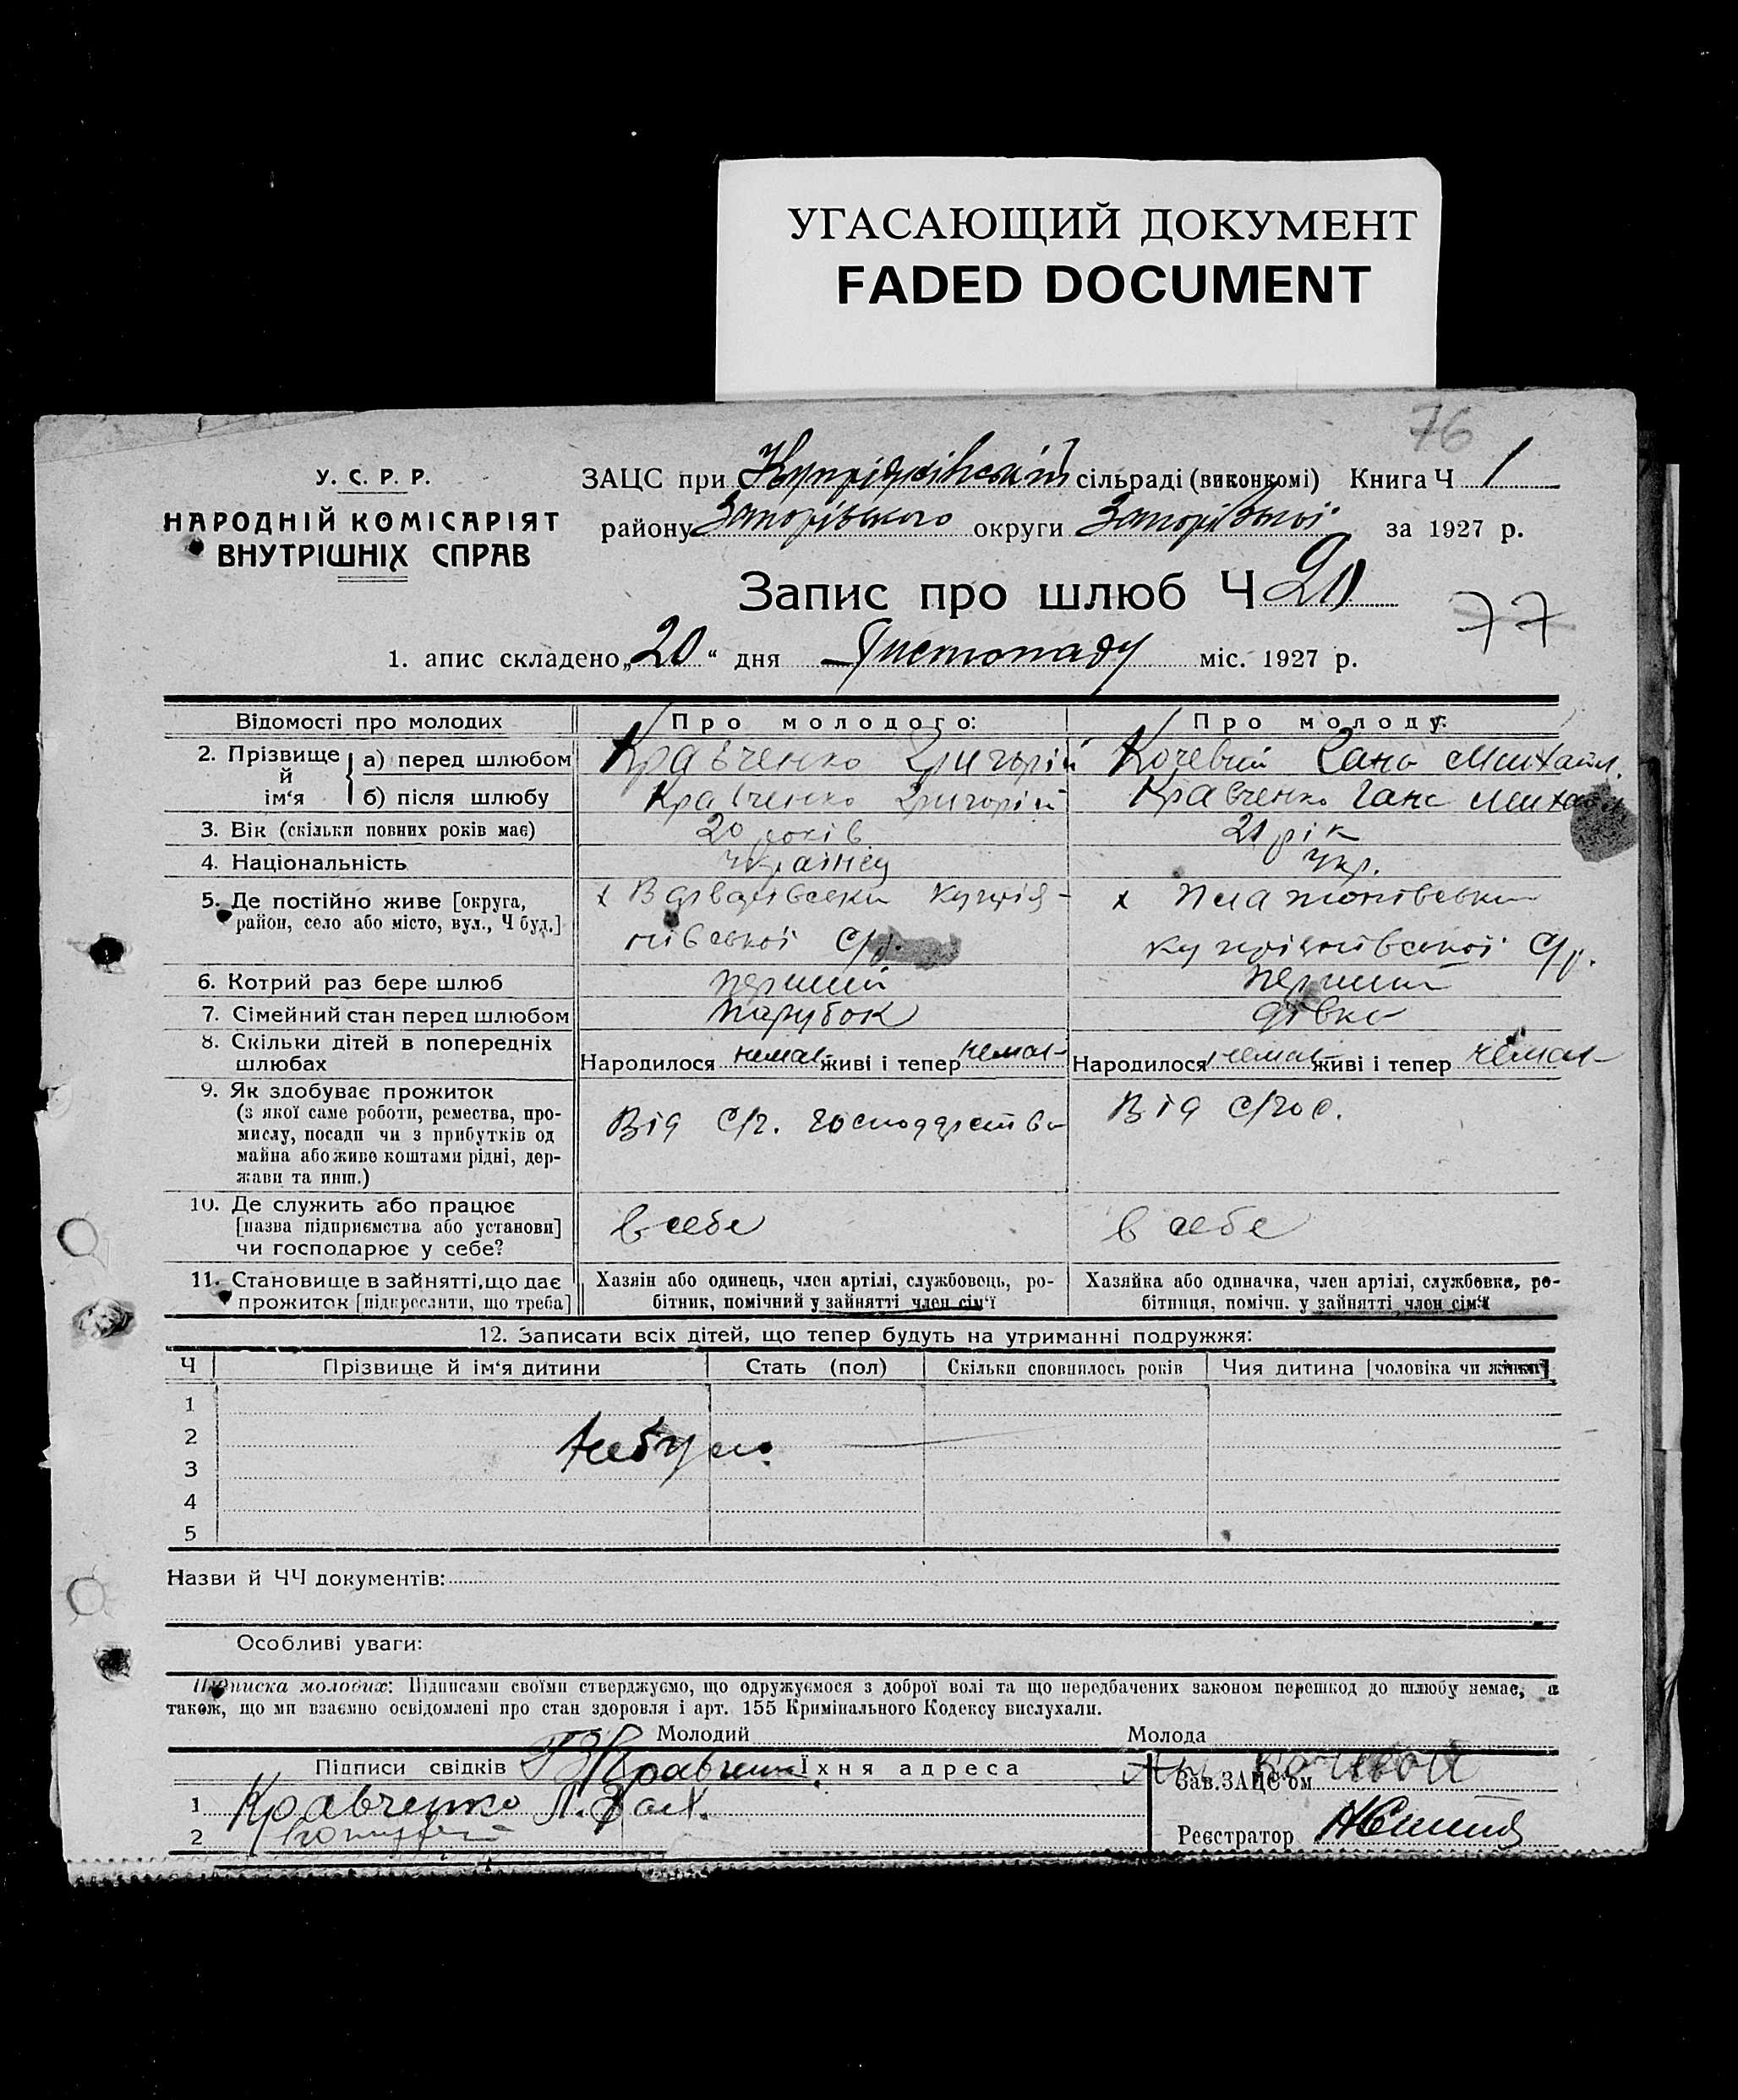 УГАСАЮЩИЙ ДОКУМЕНТ
FADED DOCUMENT
76
У. С. Р. Р.
НАРОДНІЙ КОМІСАРІЯТ
ВНУТРІШНІХ СПРАВ
ЗАЦС при сільраді (виконкомі) Книга Ч 1
району округи за 1927 р.
Запис про шлюб Ч
77
1. апис складено „20“ дня Листопаду міс. 1927 р.
Відомості про молодих Про молодого: Про молоду:
2. Прізвище й ім‘я
а) перед шлюбом Кравченко Григорій Кочевий Ганс Михайл.
б) після шлюбу Кравченко Григорій Кравченко Ганс Михайл
3. Вік (скільки повних років має) 20 років 21 рік
4. Національність українец укр.
5. Де постійно живе [округа,
район, село або місто, вул., Ч буд.]
х х
нівської С/р. С/р.
6. Котрий раз бере шлюб перший перший
7. Сімейний стан перед шлюбом парубок дівка
8. Скільки дітей в попередніх
шлюбах
Народилося немає живі і тепер немає Народилося немає живі і тепер немає
9. Як здобуває прожиток
(з якої саме роботи, ремества, про-
мислу, посади чи з прибутків од
майна або живе коштами рідні, дер-
жави та инш.)
Від С/г. господарства Від с/гос.
10. Де служить або працює
[назва підприємства або установи]
чи господарює у себе?
в себе в себе
11. Становище в зайнятті, що дає
прожиток [підкреслити, що треба]
Хазяін або одинець, член артілі, службовець, ро-
бітник, помічний у зайнятті член сім‘ї
Хазяйка або одиначка, член артілі, службовка, ро-
бітниця, помічн. у зайнятті член сім‘ї
12. Записати всіх дітей, що тепер будуть на утриманні подружжя:
Ч Прізвище й ім‘я дитини Стать (пол) Скільки сповнилось років Чия дитина [чоловіка чи жінки]
1
2
3
4
5
Назви й ЧЧ документів:
Особливі уваги:
Підписка молодих: Підписами своїми стверджуємо, що одружуємося з доброї волі та що передбачених законом перешкод до шлюбу немає, а
також, що ми взаємно освідомлені про стан здоровля і арт. 155 Кримінального Кодексу вислухали.
Молодий Молода
Підписи свідків Кравченко Їхня адреса
Зав. ЗАЦС‘ом
1 Кравченко
2
Реєстратор